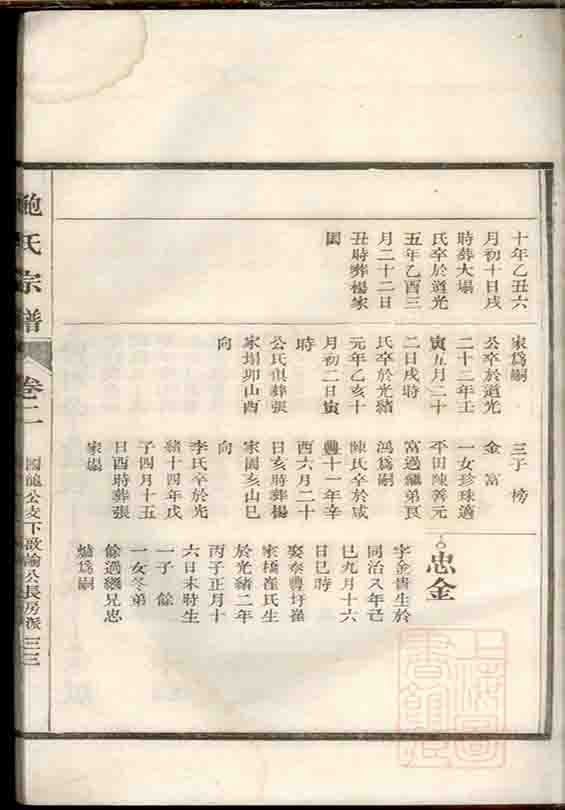 十年乙丑六
月初十日戌
時葬大塲
氏卒於道光
五年乙酉三
月二十二日
丑時葬楊家
園
家爲嗣
公卒於道光
二十三年壬
寅五月二十
二日戌時
氏卒於光緒
元年乙亥十
月初二日寅
時
公氏俱葬張
家塲卯山酉
向
三子 榜
金 富
一女珍珠適
平田陳善元
富過繼弟良
鴻爲嗣
陳氏卒於咸
豐十一年辛
酉六月二十
日亥時葬楊
家園亥山巳
向
李氏卒於光
緒十四年戊
子四月十五
日酉時葬張
家塲
忠金
字金貴生於
同治八年己
巳九月十六
日巳時
娶泰豐圩崔
家橋崔氏生
於光緒二年
丙子正月十
六日未時生
一子 餘
一女冬弟
餘過繼兄忠
爲嗣
鮑氏宗譜
卷二
國龍公支下敬愉公長房派
三三
上海圖書館藏